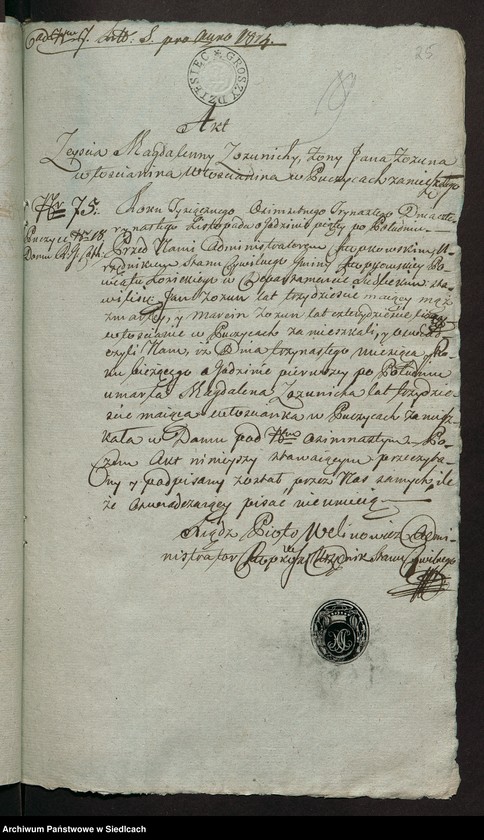 pro Anno 1814.
25
DZIESIĘĆ GROSZY
Akt
Zeyścia Magdalenny Zozunichy, żony Jana Zozuna
włościanina Włościanina w Puczycach zamieszkałego
Nr 75. Roku Tysiącznego Ośmsetnego Trzynastego Dnia czter-
Puczyce Nr 18 nastego Listopada o Godzinie piątey po Południu
Domu
Przed Nami Administratorem Hrupkowskim U-
rzędnikiem Stanu Cywilnego Gminy Hrupkowskiey Po-
wiatu Łosickiego w Departamencie Siedleckim sta-
wili się Jan Zozun lat trzydzieście maiący mąż
zmarłey, y Marcin Zozun lat czterdzieście
włościanie w Puczycach zamieszkali, y oświad-
czyli Nam, iż Dnia trzynastego miesiąca y Ro-
ku bieżącego o Godzinie pierwszey po Południu
umarła Magdalena Zozunicha lat trzydzie-
ście maiąca włościanka w Puczycach zamiesz-
kała w Domu pod Nrem osimnastym. Po-
czem Akt ninieyszy stawaiącym przeczyta-
ny y podpisany został przez Nas samych, ile
że oświadczaiący pisać nieumieią
Xiądz Piotr Welinowicz Admi-
nistrator Urzędnik Stanu Cywilnego
Archiwum Państwowe w Siedlcach